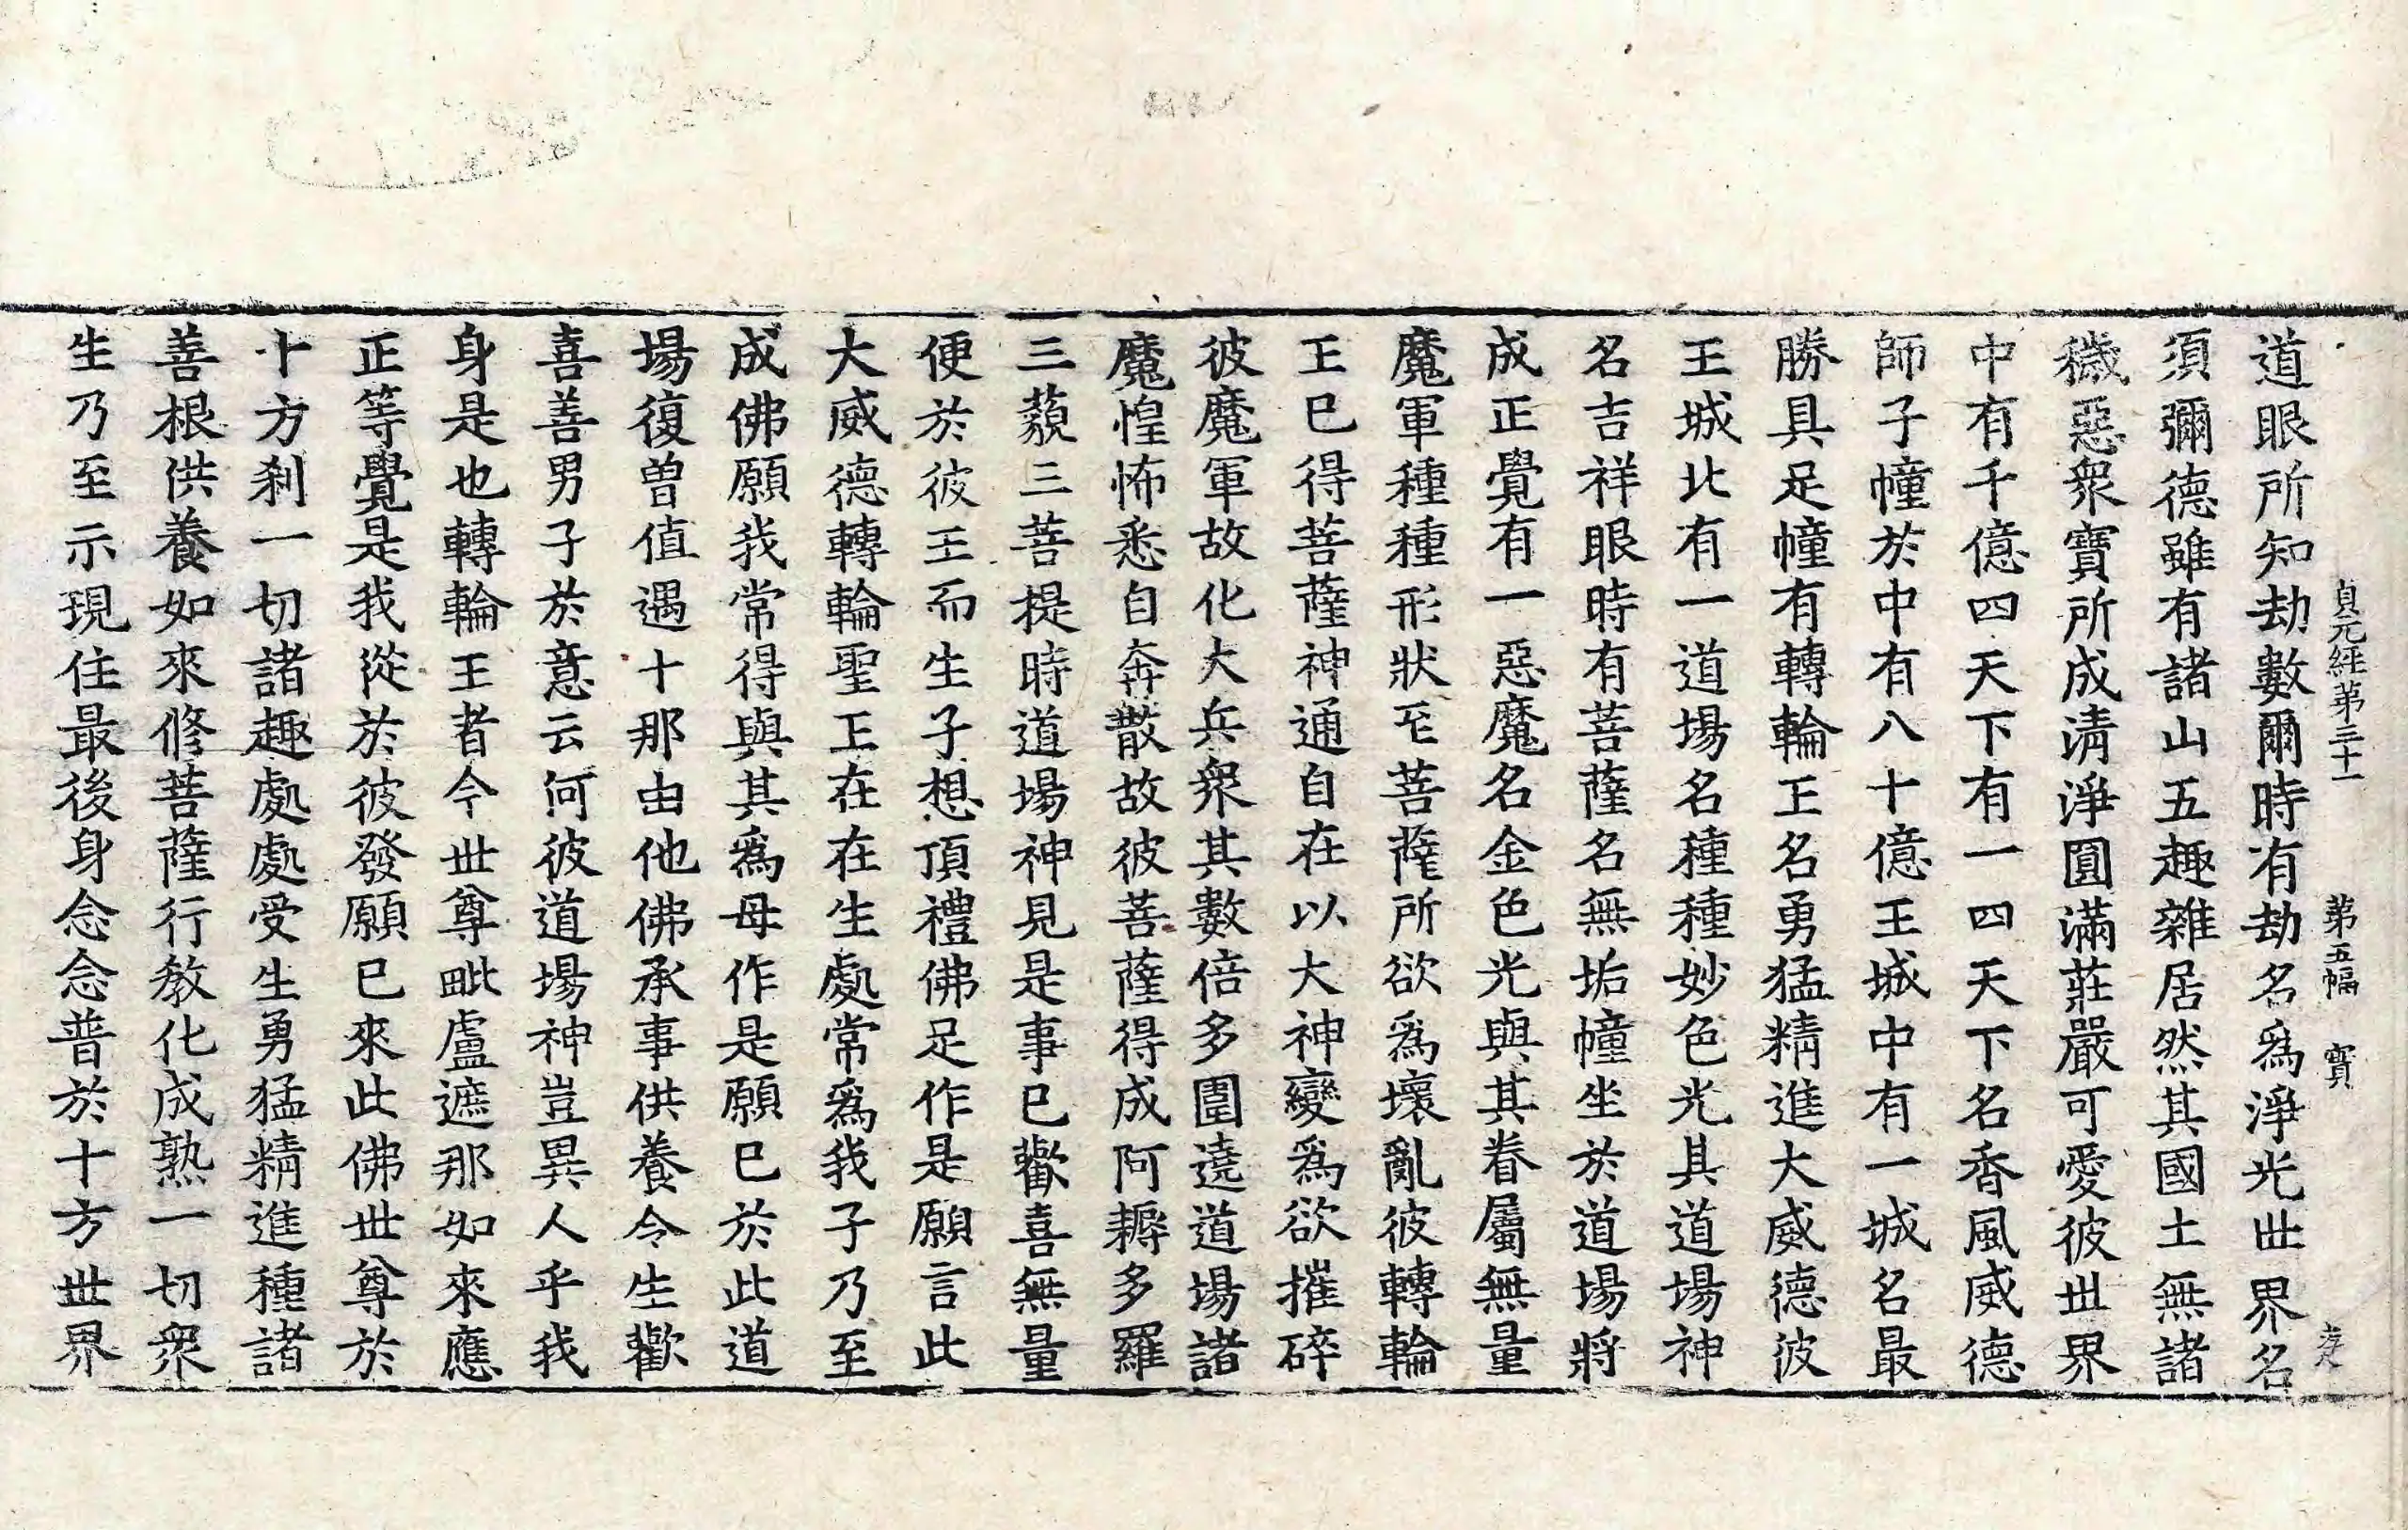 貞元經第三十一 第五幅 寶
道眼所知劫數爾時有劫名爲淨光世界名
須彌德雖有諸山五趣雜居然其國土無諸
穢惡衆寶所成淸淨圓滿莊嚴可愛彼世界
中有千億四天下有一四天下名香風威德
師子幢於中有八十億王城中有一城名最
勝具足幢有轉輪王名勇猛精進大威德彼
王城北有一道場名種種妙色光其道場神
名吉祥眼時有菩薩名無垢幢坐於道場將
成正覺有一惡魔名金色光與其眷屬無量
魔軍種種形狀至菩薩所欲爲壞亂彼轉輪
王已得菩薩神通自在以大神變爲欲摧碎
彼魔軍故化大兵衆其數倍多圍遶道場諸
魔惶怖悉自奔散故彼菩薩得成阿耨多羅
三藐三菩提時道場神見是事已歡喜無量
便於彼王而生子想頂禮佛足作是願言此
大威德轉輪聖王在在生處常爲我子乃至
成佛願我常得與其爲母作是願已於此道
場復曾值遇十那由他佛承事供養令生歡
喜善男子於意云何彼道場神豈異人乎我
身是也轉輪王者今世尊毗盧遮那如來應
正等覺是我從於彼發願已來此佛世尊於
十方剎一切諸趣處處受生勇猛精進種諸
善根供養如來修菩薩行教化成熟一切衆
生乃至示現住最後身念念普於十方世界